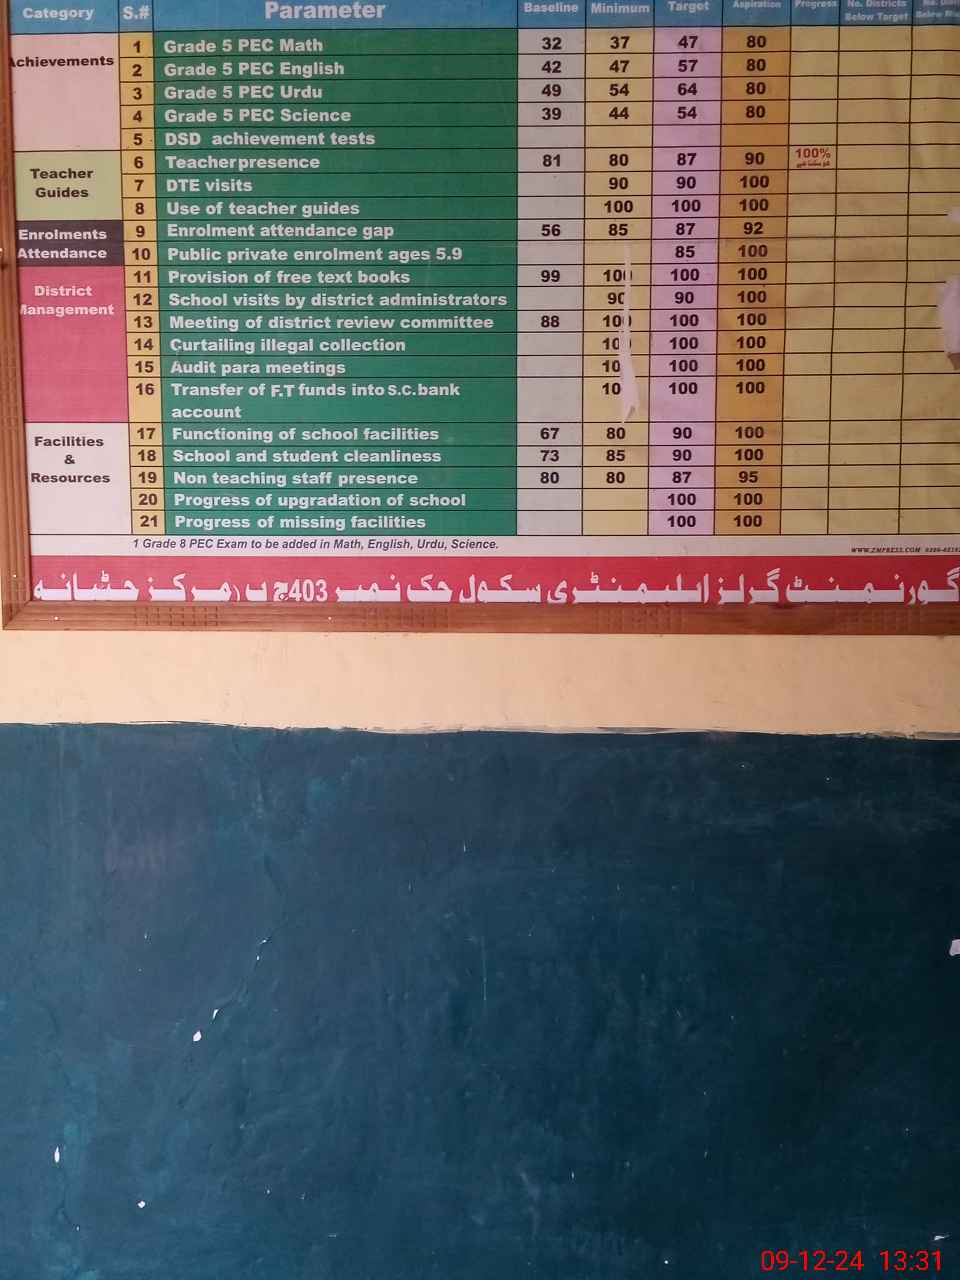 Category S.# Parameter Baseline Minimum Target Aspiration Progress No. Districts Below Target
Achievements
1 Grade 5 PEC Math 32 37 47 80
2 Grade 5 PEC English 42 47 57 80
3 Grade 5 PEC Urdu 49 54 64 80
4 Grade 5 PEC Science 39 44 54 80
5 DSD achievement tests
Teacher Guides
6 Teacher presence 81 80 87 90 100%
7 DTE visits 90 90 100
8 Use of teacher guides 100 100 100
Enrolments Attendance
9 Enrolment attendance gap 56 85 87 92
10 Public private enrolment ages 5.9 85 100
District Management
11 Provision of free text books 99 100 100 100
12 School visits by district administrators 90 90 100
13 Meeting of district review committee 88 100 100 100
14 Curtailing illegal collection 10 100 100
15 Audit para meetings 10 100 100
16 Transfer of F.T funds into S.C. bank account 10 100 100
Facilities & Resources
17 Functioning of school facilities 67 80 90 100
18 School and student cleanliness 73 85 90 100
19 Non teaching staff presence 80 80 87 95
20 Progress of upgradation of school 100 100
21 Progress of missing facilities 100 100
1 Grade 8 PEC Exam to be added in Math, English, Urdu, Science.
WWW.ZMPRESS.COM
گورنمنٹ گرلز ایلیمنٹری سکول چک نمبر 403 ج ب (مرکز جٹیانہ
09-12-24 13:31